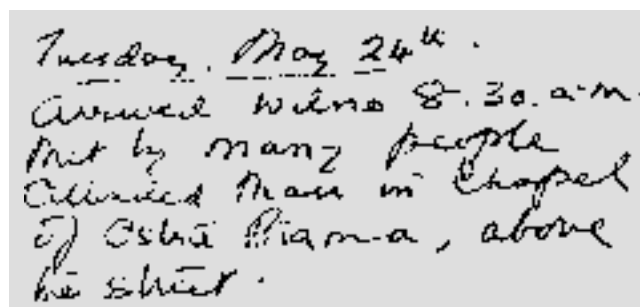 Tuesday. May 24th.
Arrived Wilno 8.30. a.m.
Met by many people
Attended Mass in Chapel
of Ostra Brama, above
the street.